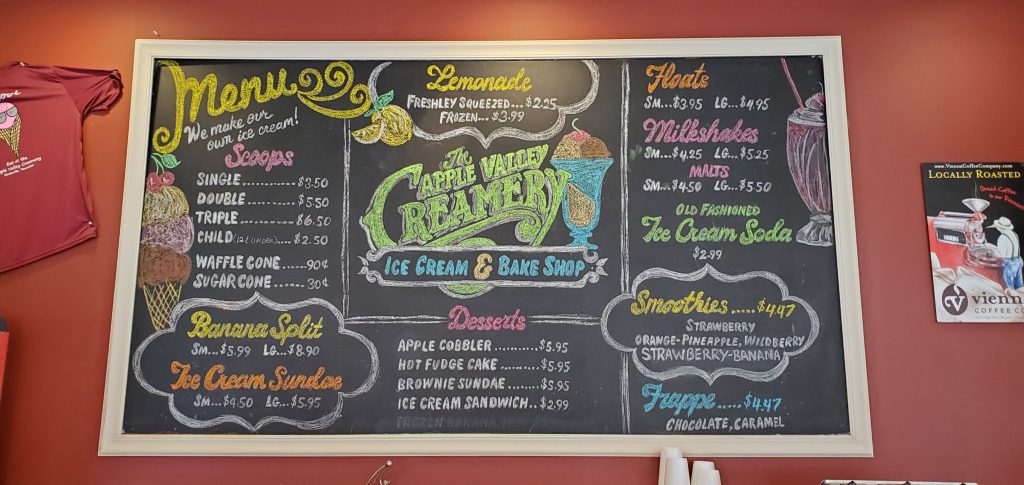 Menu
We make our
own ice cream!
Scoops
SINGLE ............. $3.50
DOUBLE ............ $5.50
TRIPLE ............ $6.50
CHILD (12 & UNDER).... $2.50
WAFFLE CONE ..... 90¢
SUGAR CONE ..... 30¢
Banana Split
SM...$5.99 LG...$8.90
Ice Cream Sundae
SM...$4.50 LG...$5.95
Lemonade
FRESHLEY SQUEEZED...$2.25
FROZEN...$3.99
The
APPLE VALLEY
CREAMERY
ICE CREAM & BAKE SHOP
Desserts
APPLE COBBLER ........... $5.95
HOT FUDGE CAKE ..... $5.95
BROWNIE SUNDAE ...... $5.95
ICE CREAM SANDWICH.. $2.99
FROZEN BANANA
Floats
SM...$3.95 LG...$4.95
Milkshakes
SM...$4.25 LG...$5.25
MALTS
SM...$4.50 LG...$5.50
OLD FASHIONED
Ice Cream Soda
$2.99
Smoothies.....$4.47
STRAWBERRY
ORANGE-PINEAPPLE, WILDBERRY
STRAWBERRY-BANANA
Frappe.....$4.47
CHOCOLATE, CARAMEL
www.ViennaCoffeeCompany.com
LOCALLY ROASTED
Great Coffee
is our Passion
vienn
COFFEE CO